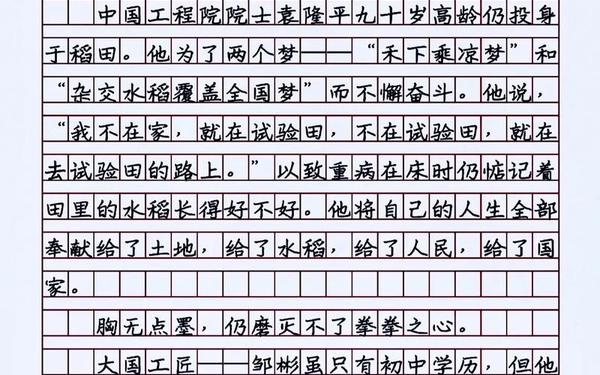 中国工程院院士袁隆平九十岁高龄仍投身
于稻田。他为了两个梦——“禾下乘凉梦”和
“杂交水稻覆盖全国梦”而不懈奋斗。他说，
“我不在家，就在试验田，不在试验田，就在
去试验田的路上。”以致重病在床时仍惦记着
田里的水稻长得好不好。他将自己的人生全部
奉献给了土地，给了水稻，给了人民，给了国
家。
胸无点墨，仍磨灭不了拳拳之心。
大国工匠——邹彬虽只有初中学历，但他